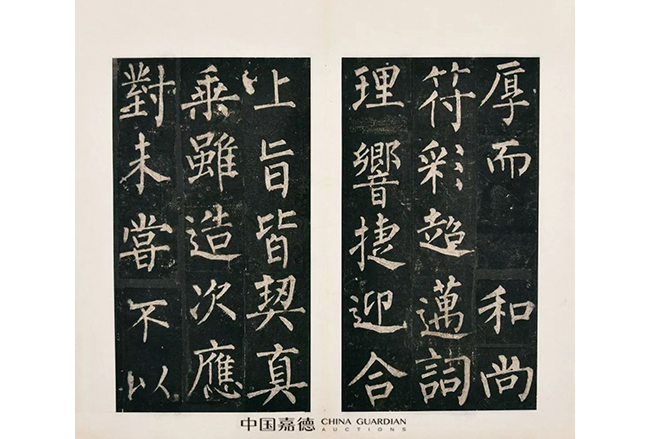 厚而 和尚
符彩超邁詞
理響捷迎合
上旨皆契真
乘雖造次應
對未甞不以
中国嘉德 CHINA GUARDIAN
AUCTIONS